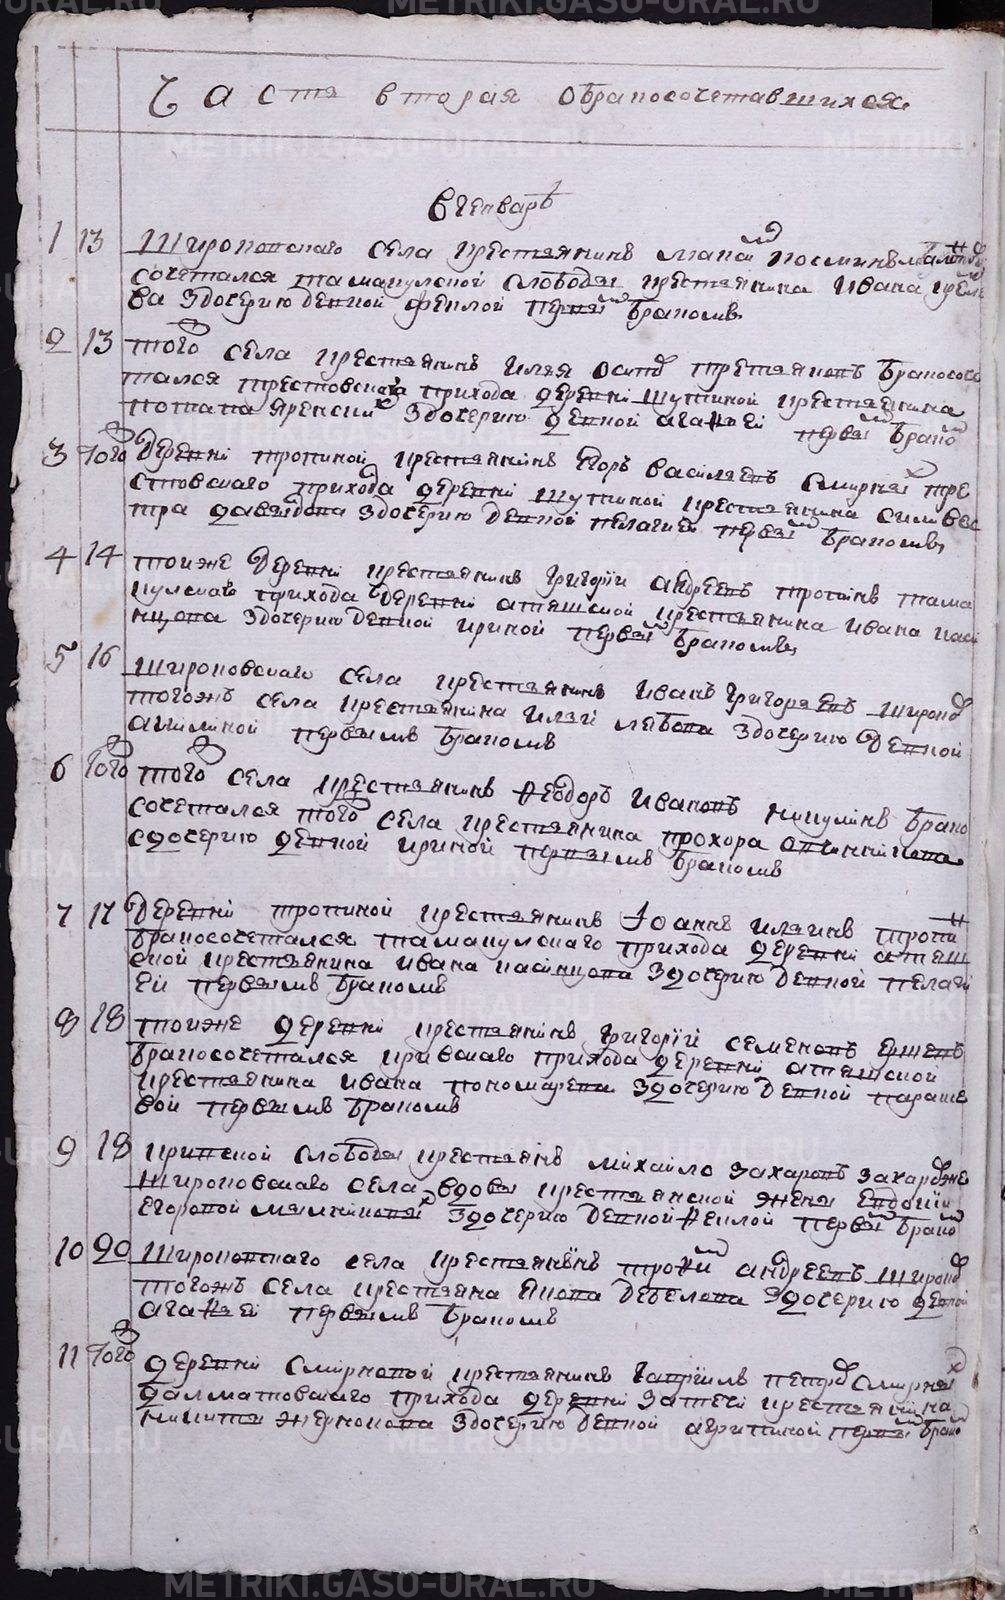 Часть вторая обракосочетавшихся
В Генваре
1 13 Широковскаго села крестьянинъ
сочетался таманулской слободы крестьянина Ивана
ва здочерию девкой феклой первымъ бракомъ
2 13 того села крестьянинъ Илья Осип третьяковъ бракосоче
тался крестовскаго прихода деревни шутиной крестьянина
потапа здочерию девкой агафьей первы брако
3 того Деревни тропиной крестьянинъ Егоръ Васильевъ Смирных кре
стовскаго прихода деревни шутиной крестьянина силивес
тра давыдова здочерию девкой пелагией первы бракомъ
4 14 тоиже Деревни крестьянинъ Григорїи андреевъ тропинъ тама
кулскаго прихода деревни атяшской крестьянина Ивана каси
нцова здочерию девкой ириной первы бракомъ
5 16 Широковскаго села крестьянинъ Иванъ Григорьевъ Широков
тогожъ села крестьянина Ильи здочерию девкой
акилиной первымъ бракомъ
6 того того села крестьянинъ Ѳеодоръ Ивановъ никулинъ брако
сочетался того села крестьянина прохора
сдочерию девкой ириной первымъ бракомъ
7 17 Деревни тропиной крестьянинъ Іоаннъ Ильинъ тропин
бракосочетался таманулскаго прихода деревни атяш
ской крестьянина ивана касинцова здочерию девкой пелаги
ей первымъ бракомъ
8 18 тоиже деревни крестьянинъ Григорїй семеновъ
бракосочетался кривскаго прихода деревни атяшской
крестьянина ивана пономарева здочерию девкой параске
вой первымъ бракомъ
9 18 кривской слободы крестьянинъ михайло захаровъ
Широковскаго села вдовы крестьянской жены Евдокїи
Егоровой здочерию девкой Ѳеклой первы брако
10 20 Широковскаго села крестьянинъ трофи андреевъ широков
тогожъ села крестьяна Якова дебелова здочерию девкой
агафьей первымъ бракомъ
11 того деревни Смирновой крестьянинъ Гаврїилъ петров Смирных
далматовскаго прихода деревни затечи крестьянина
никиты жернокова здочерию девкой агрипиной первы брако
METRIKI.GASU-URAL.RU